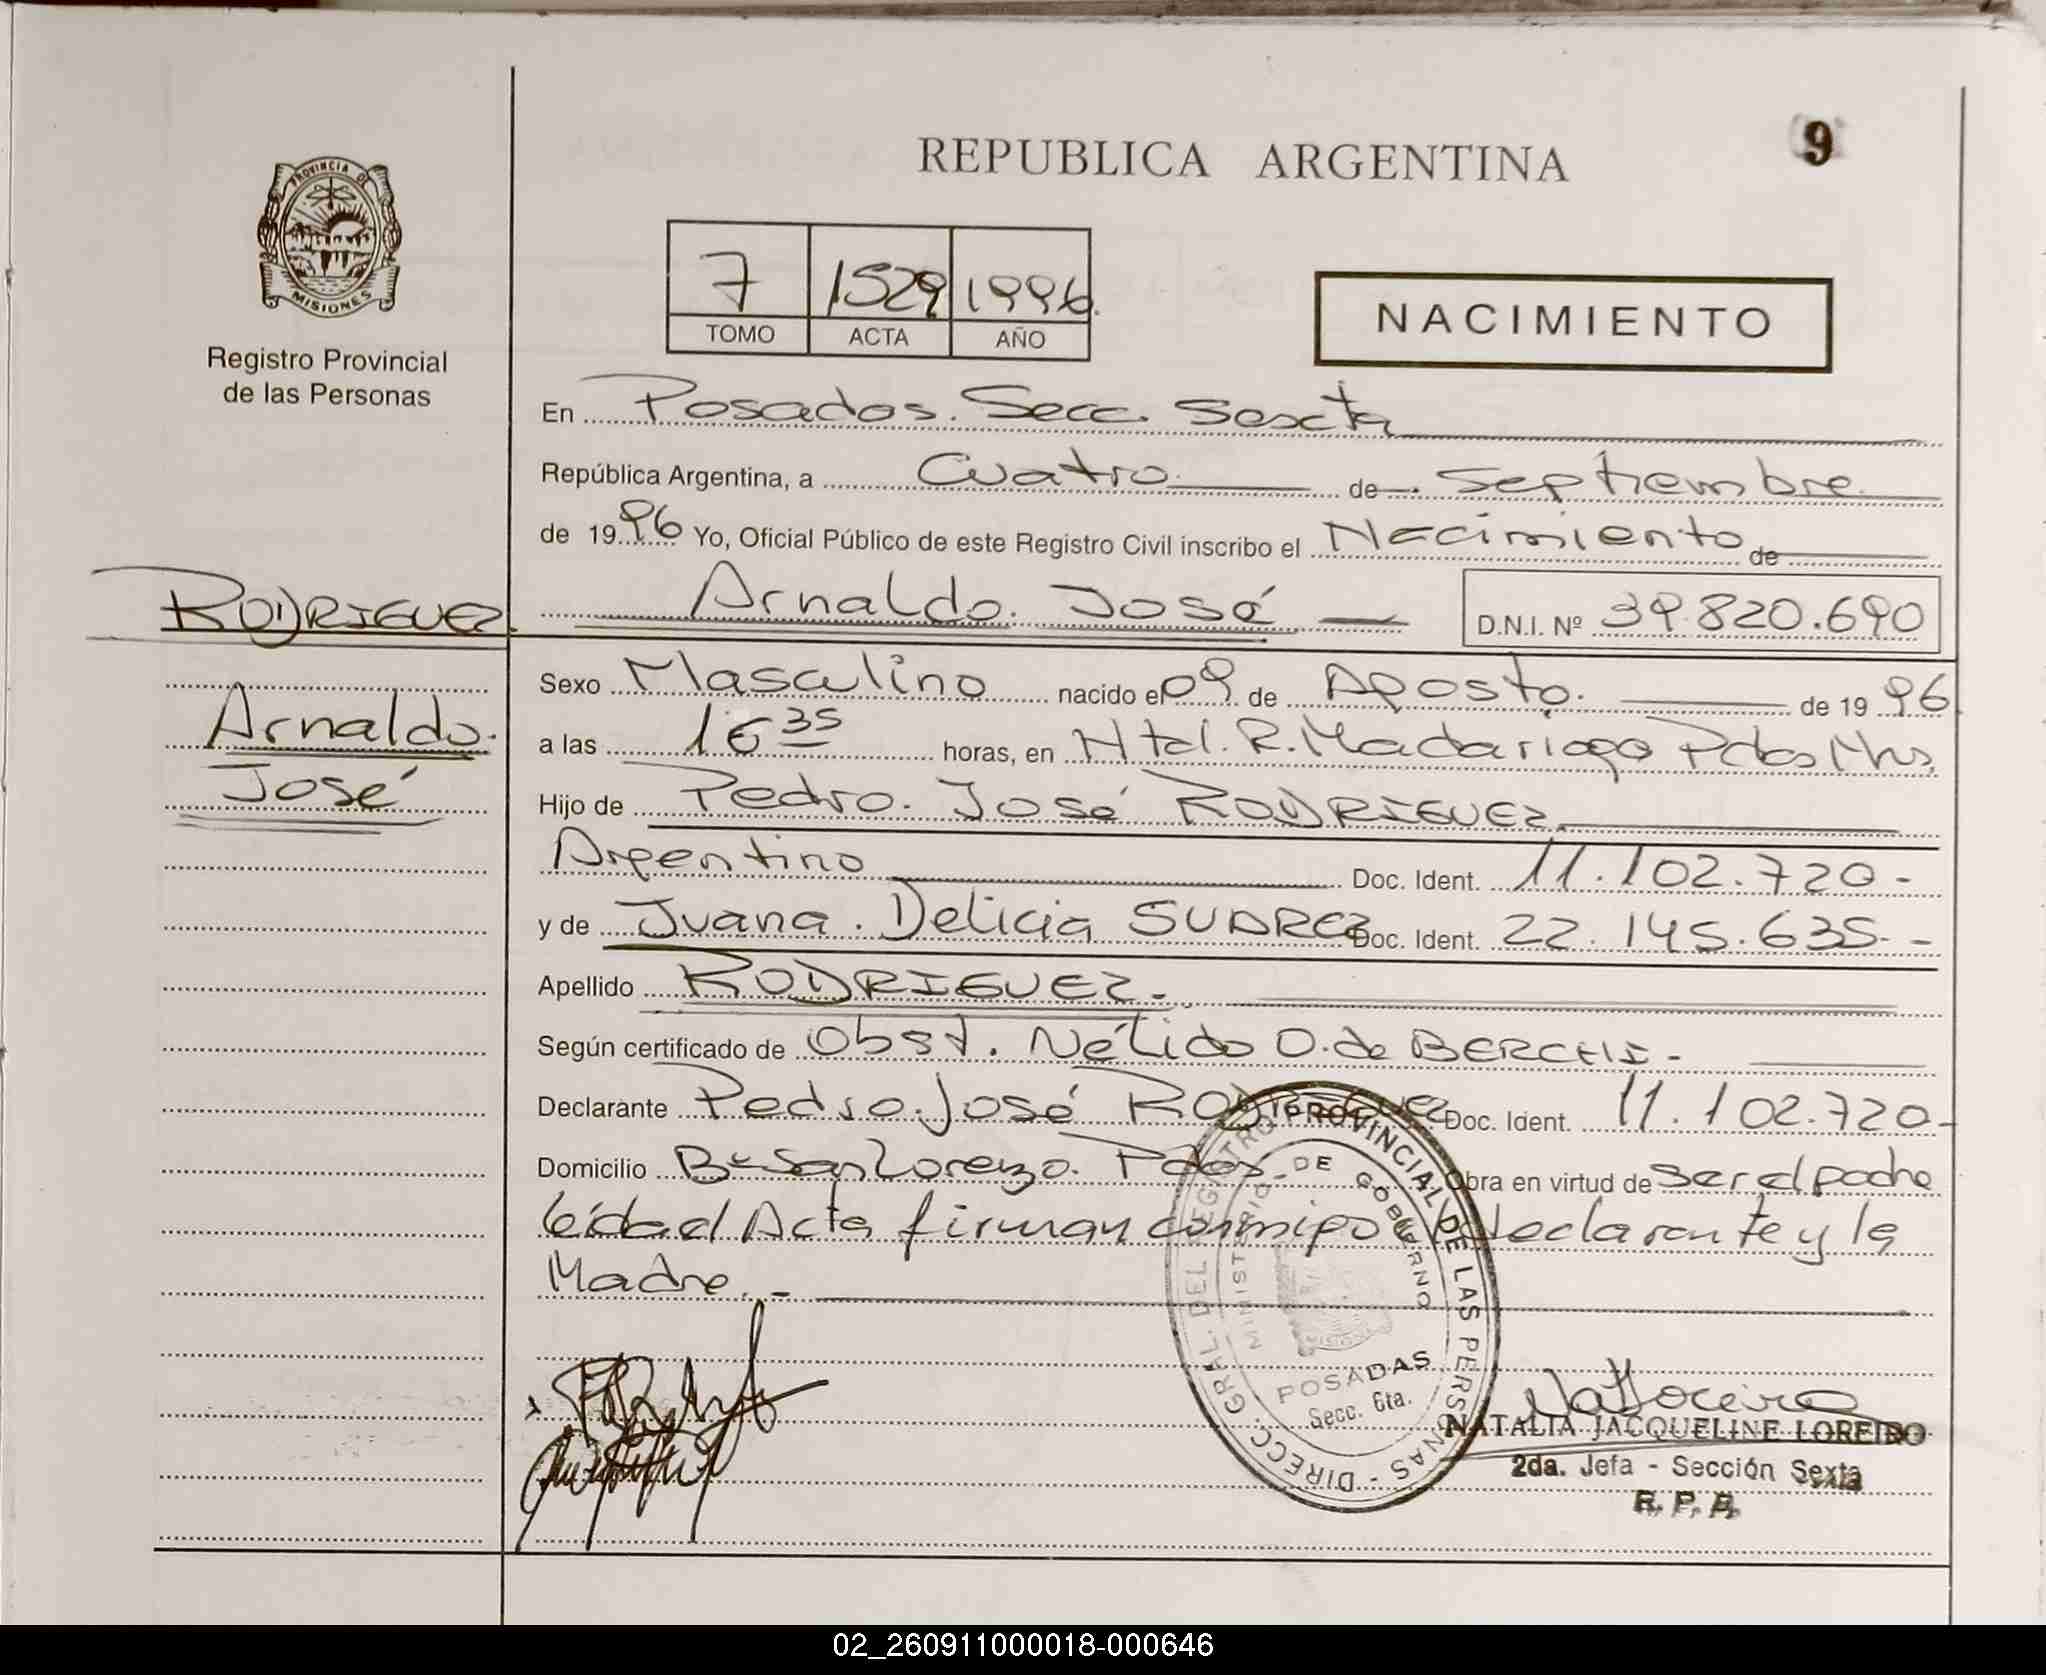 REPUBLICA ARGENTINA
9
PROVINCIA DE
MISIONES
Registro Provincial
de las Personas
7 1529 1996.
TOMO ACTA AÑO
NACIMIENTO
En Posadas. Secc. Sexta
República Argentina, a Cuatro de Septiembre.
de 1996 Yo, Oficial Público de este Registro Civil inscribo el Nacimiento de
RODRIGUEZ Arnaldo. José D.N.I. Nº 39.820.690
Arnaldo.
José
Sexo Masculino nacido el 09 de Agosto. de 1996
a las 16 35 horas, en Htal. R. Madariaga Pdas Mns.
Hijo de Pedro. José RODRIGUEZ.
Argentino Doc. Ident. 11.102.720-
y de Juana. Delicia SUAREZ Doc. Ident. 22.145.635.-
Apellido RODRIGUEZ.
Según certificado de Obst. Nélida O. de BERCHI-
Declarante Pedro. José RODRIGUEZ Doc. Ident. 11.102.720-
Domicilio Bº San Lorenzo. Pdas. Obra en virtud de ser el padre
leída el Acta firman conmigo el declarante y la
Madre.-
DIRECC. GRAL. DEL REGISTRO PROVINCIAL DE LAS PERSONAS
MINISTERIO DE GOBIERNO
POSADAS
Secc. 6ta.
NATALIA JACQUELINE LOREIRO
2da. Jefa - Sección Sexta
R. P. P.
02_260911000018-000646